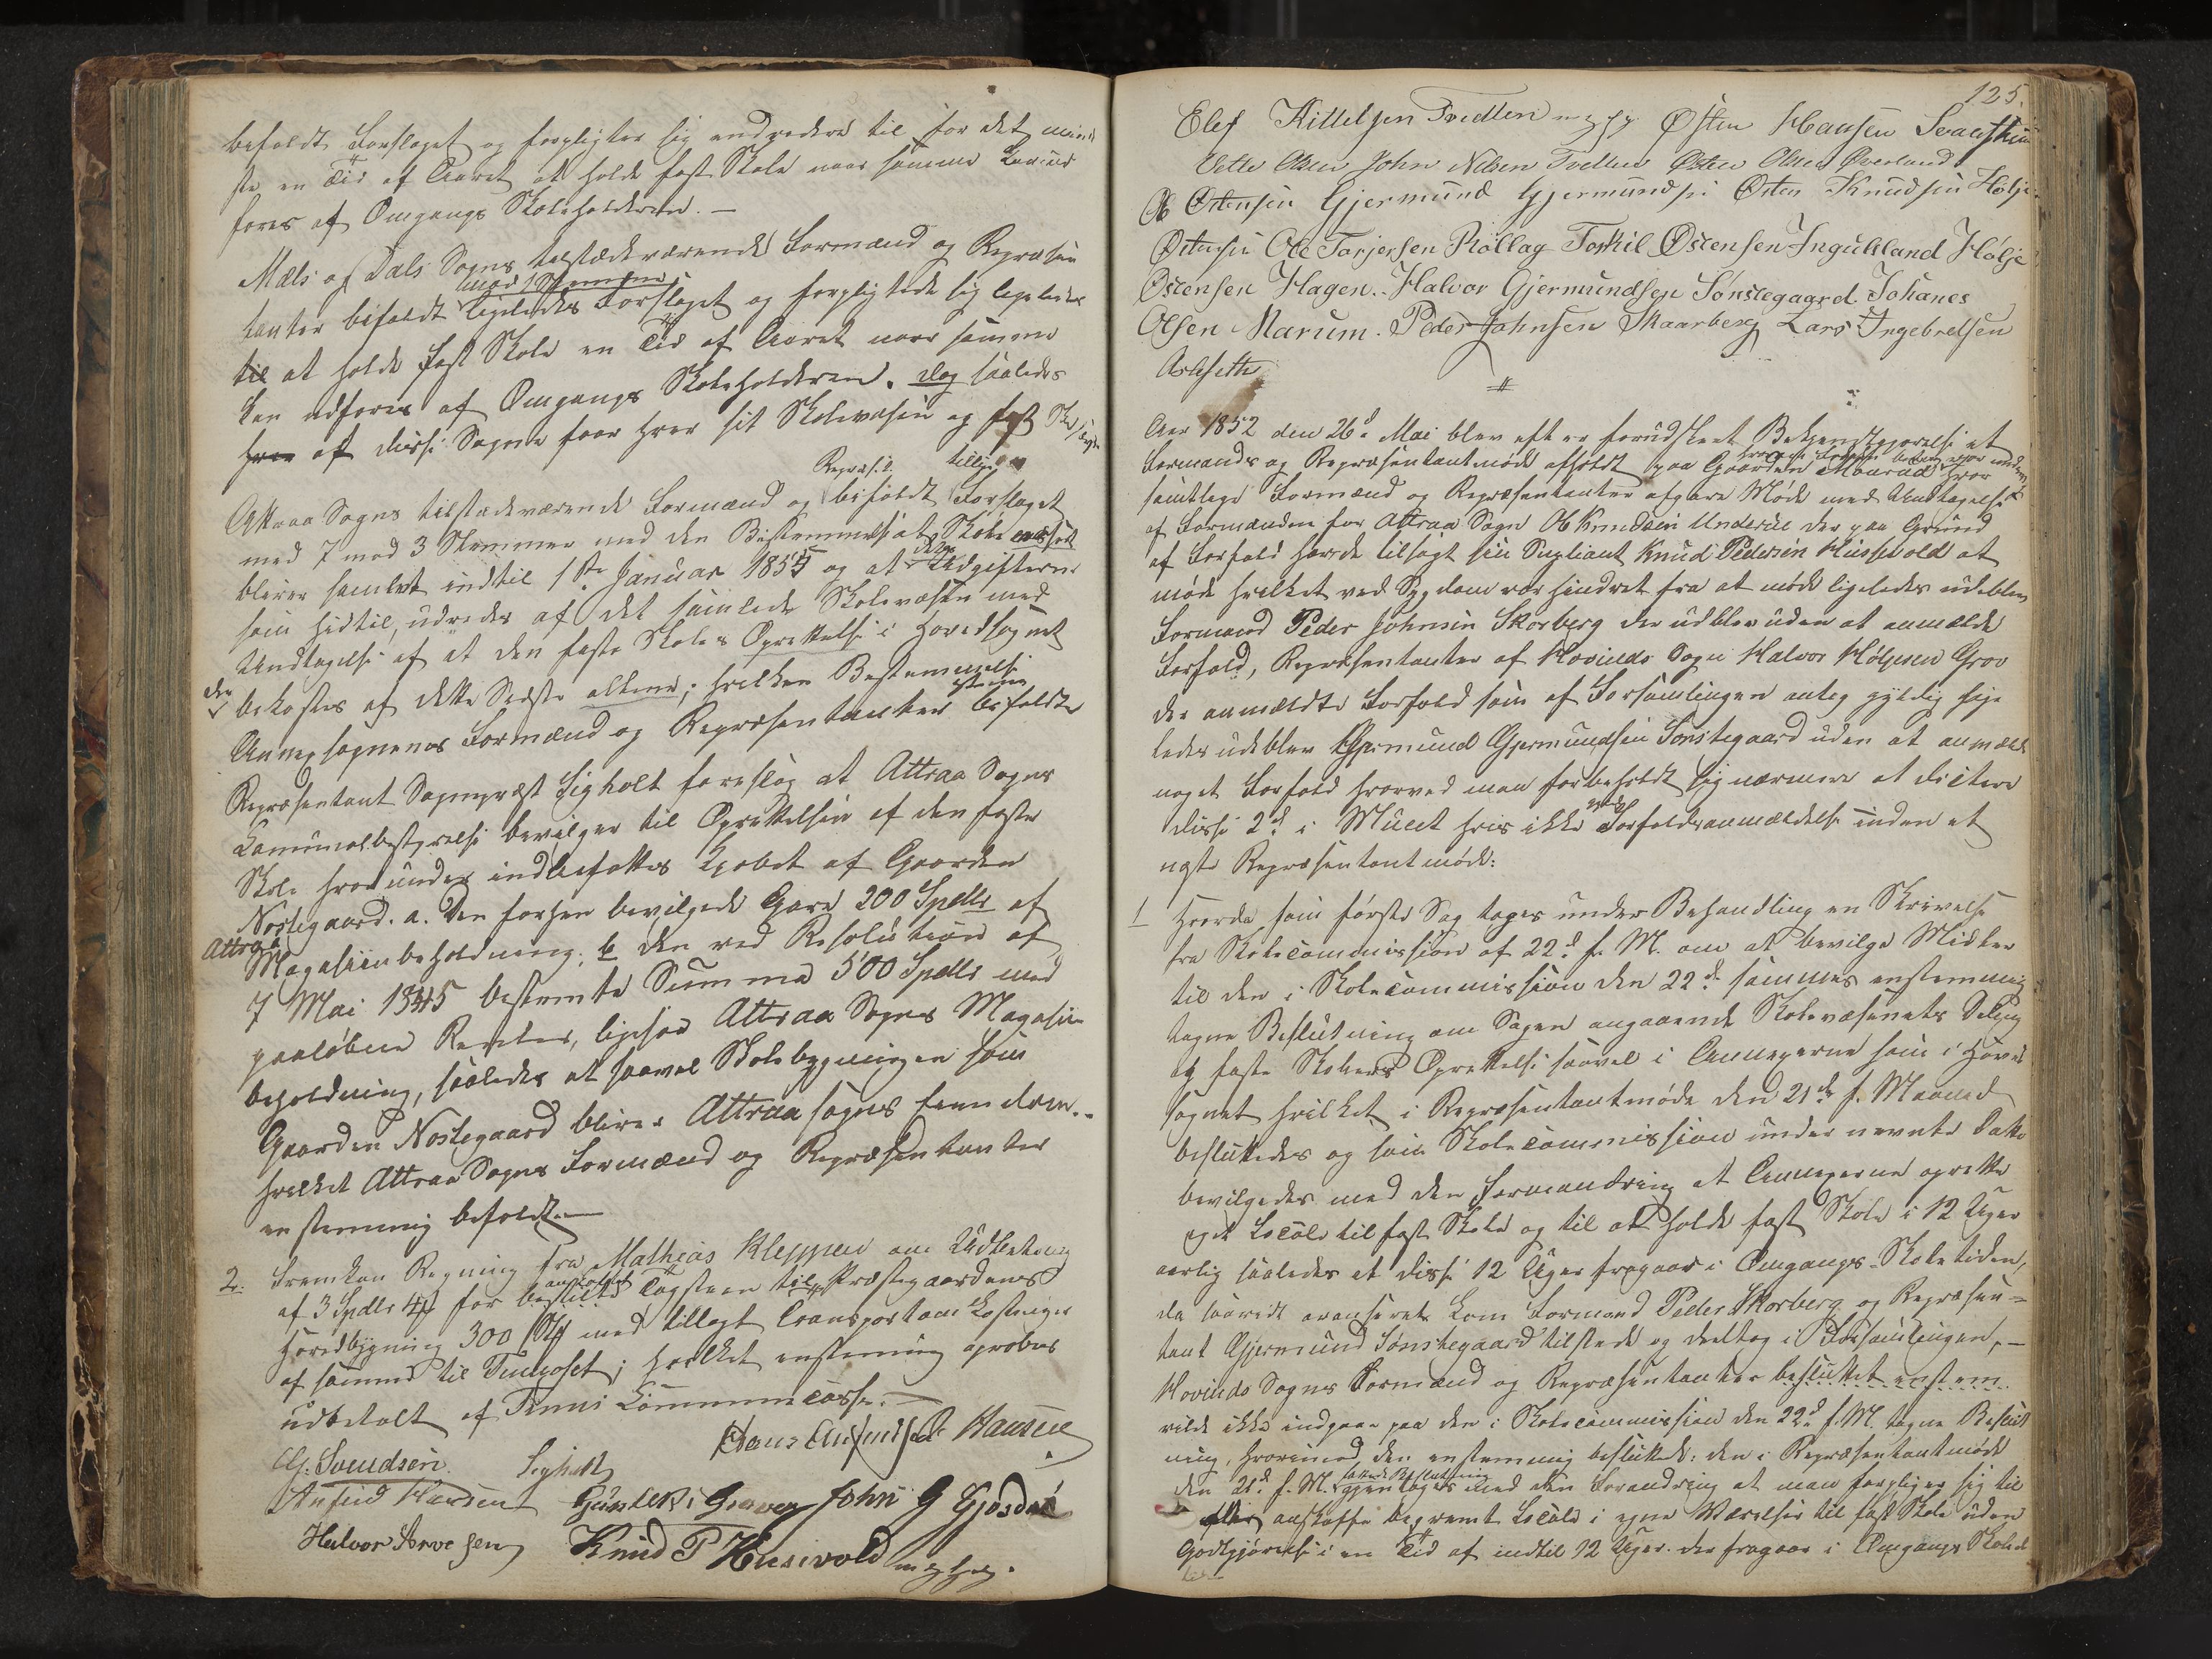 bifaldt Forslaget og forpligter sig endvidere til for det mind
ste en Tid af Aaret at holde fast Skole naar samme kan ud
føres af Omgangs Skoleholderen. —
Mæls og Dals Sogns tilstedeværende Formænd og Repræsen
mod 1 Stemme
tanter bifaldt ligeledes Forslaget og forpligtede sig ligeledes
til at holde fast Skole en Tid af Aaret naar samme
kan udføres af Omgangs Skoleholderen. Dog saaledes
hver af disse Sogne faar hver sit Skolevæsen og fast Sko
Repræs. tillige
Attraa Sogns tilstedeværende Formænd og bifaldt Forslaget
med 7 mod 3 Stemmer med den Bestemmelse at Skolevæsenet
bliver samlet indtil 1ste Januar 1855 og at Udgifterne
som hidtil, udredes af det samlede Skolevæsen med
Undtagelse af at den faste Skoles Oprettelse i Hovedsognet
den bekostes af dette Sidste allene; hvilken Bestemmelse
Annexsognenes Formænd og Repræsentanter bifaldte
Repræsentant Sogneprest Sigholt foreslog at Attraa Sogns
Communalbestyrelse bevilger til Oprettelsen af den faste
Skole hvorunder indbefattes Kjøbet af Gaarden
Nostegaard. a. Den forhen bevilgede Gave 200 Spdlr af
Attraa
Magasiinbeholdning; b den ved Resolution af
7 Mai 1845 bestemte Summa 500 Spdlr med
paaløbne Renter, ligesaa Attraa Sogns Magasin
beholdning, saaledes at saavel Skolebygningen som
Gaarden Nostegaard bliver Attraa sogns Eiendom.-
hvilket Attraa Sogns Formænd og Repræsentanter
enstemmig bifaldt. —
2. Fremkom Regning fra Mathias Kleppen om Udbetaling
af 3 Spdlr for Tagsteen til Præstegaardens
Hovedbygning 300 Stk med tillagt Transportomkostninger
af samme til Tinnoset; hvilket enstemmig aprobes
udbetalt af Tinns Communecasse. —
G. Svendsen. Sigholt Hans Ansund Hansen
Ansund Hansen Gunleki Graver John G Gjøsdal
Halvor Arvesen Knud P Husevold m.f.P.
125.
Elef Kittelsen Tvedten m.f.P. Østen Hansen
Vetle Olsen John Nilsen Tvedten Østen Olsen Øverland
Ob Østensen Gjermund Gjermundsen Østen Knudsen Hølje
Østensen Ole Torjersen Rollag Torkil Østensen Ingulsland Hølje
Østensen Hagen. Halvor Gjermundsen Sønstegaard. Johanes
Olsen Marum. Peder Johnsen Skaarberg Lars Ingebretsen
Aslesette
Aar 1852 den 26de Mai blev efter forudskeet Bekjendtgjørelse et
Formands og Repræsentantmøde afholdt paa Gaarden Maurud hvor
samtlige Formænd og Repræsentanter afgave Møde med Undtagelse
af Formanden for Attraa Sogn Ob Knudsen Underdal der paa Grund
af Forfald havde tilsagt sin Supliant Knud Pedersen Husevold at
møde hvilket ved Sygdom var hindret fra at møde ligeledes udeblev
Formand Peder Johnsen Skarberg der udblev uden at anmælde
Forfald, Repræsentanten af Hovinds Sogn Halvor Høljesen Grov
der anmældte Forfald som af Forsamlingen antog gyldig lige
ledes udeblev Gjermund Gjermundsen Sønstegaard uden at anmælde
noget Forfald hvorved man forbeholdt sig nærmere at dictere
disse 2de i Mulct hvis ikke Forfaldsanmældelse inden et
næste Repræsentantmøde:
1 Hvorda som første Sag toges under Behandling en Skrivelse
fra Skolecommission af 22de f. M. om at bevilge Midler
til den i Skolecommission den 22de sammes enstemmig
tagne Beslutning om Sagen angaaende Skolevæsenets Deling
og faste Skolers Oprettelse saavel i Annexerne som i Hoved
sognet hvilket i Repræsentantmøde den 21de f. Maaned
besluttedes og som Skolecommission under nevnte Datto
bevilgedes med den Forandring at Annexerne oprette
eget Locale til fast Skole og til at holde fast Skole i 12 Uger
aarlig saaledes at disse 12 Uger fragaar i Omgangs-Skoletiden,
da saavidt avanseret kom Formand Peder Skarberg og Repræsen=
tant Gjermund Sønstegaard tilstede og deeltog i Forsamlingen, —
Hovinds Sogns Formænd og Repræsentanter besluttet enstem
vilde ikke indgaae paa den i Skolecommission den 22de f. M. tagne Beslut
ning, hvorimod den enstemmig besluttede: den i Repræsentantmøde
fattede Beslutning
den 21de f. M. gjentages med den Forandring at man forpligter sig til
anskaffe beqvemt Locale i egne Værelser til fast Skole uden
Godtgjørelse i en Tid af indtil 12 Uger. der fragaar i Omgangs Skolet